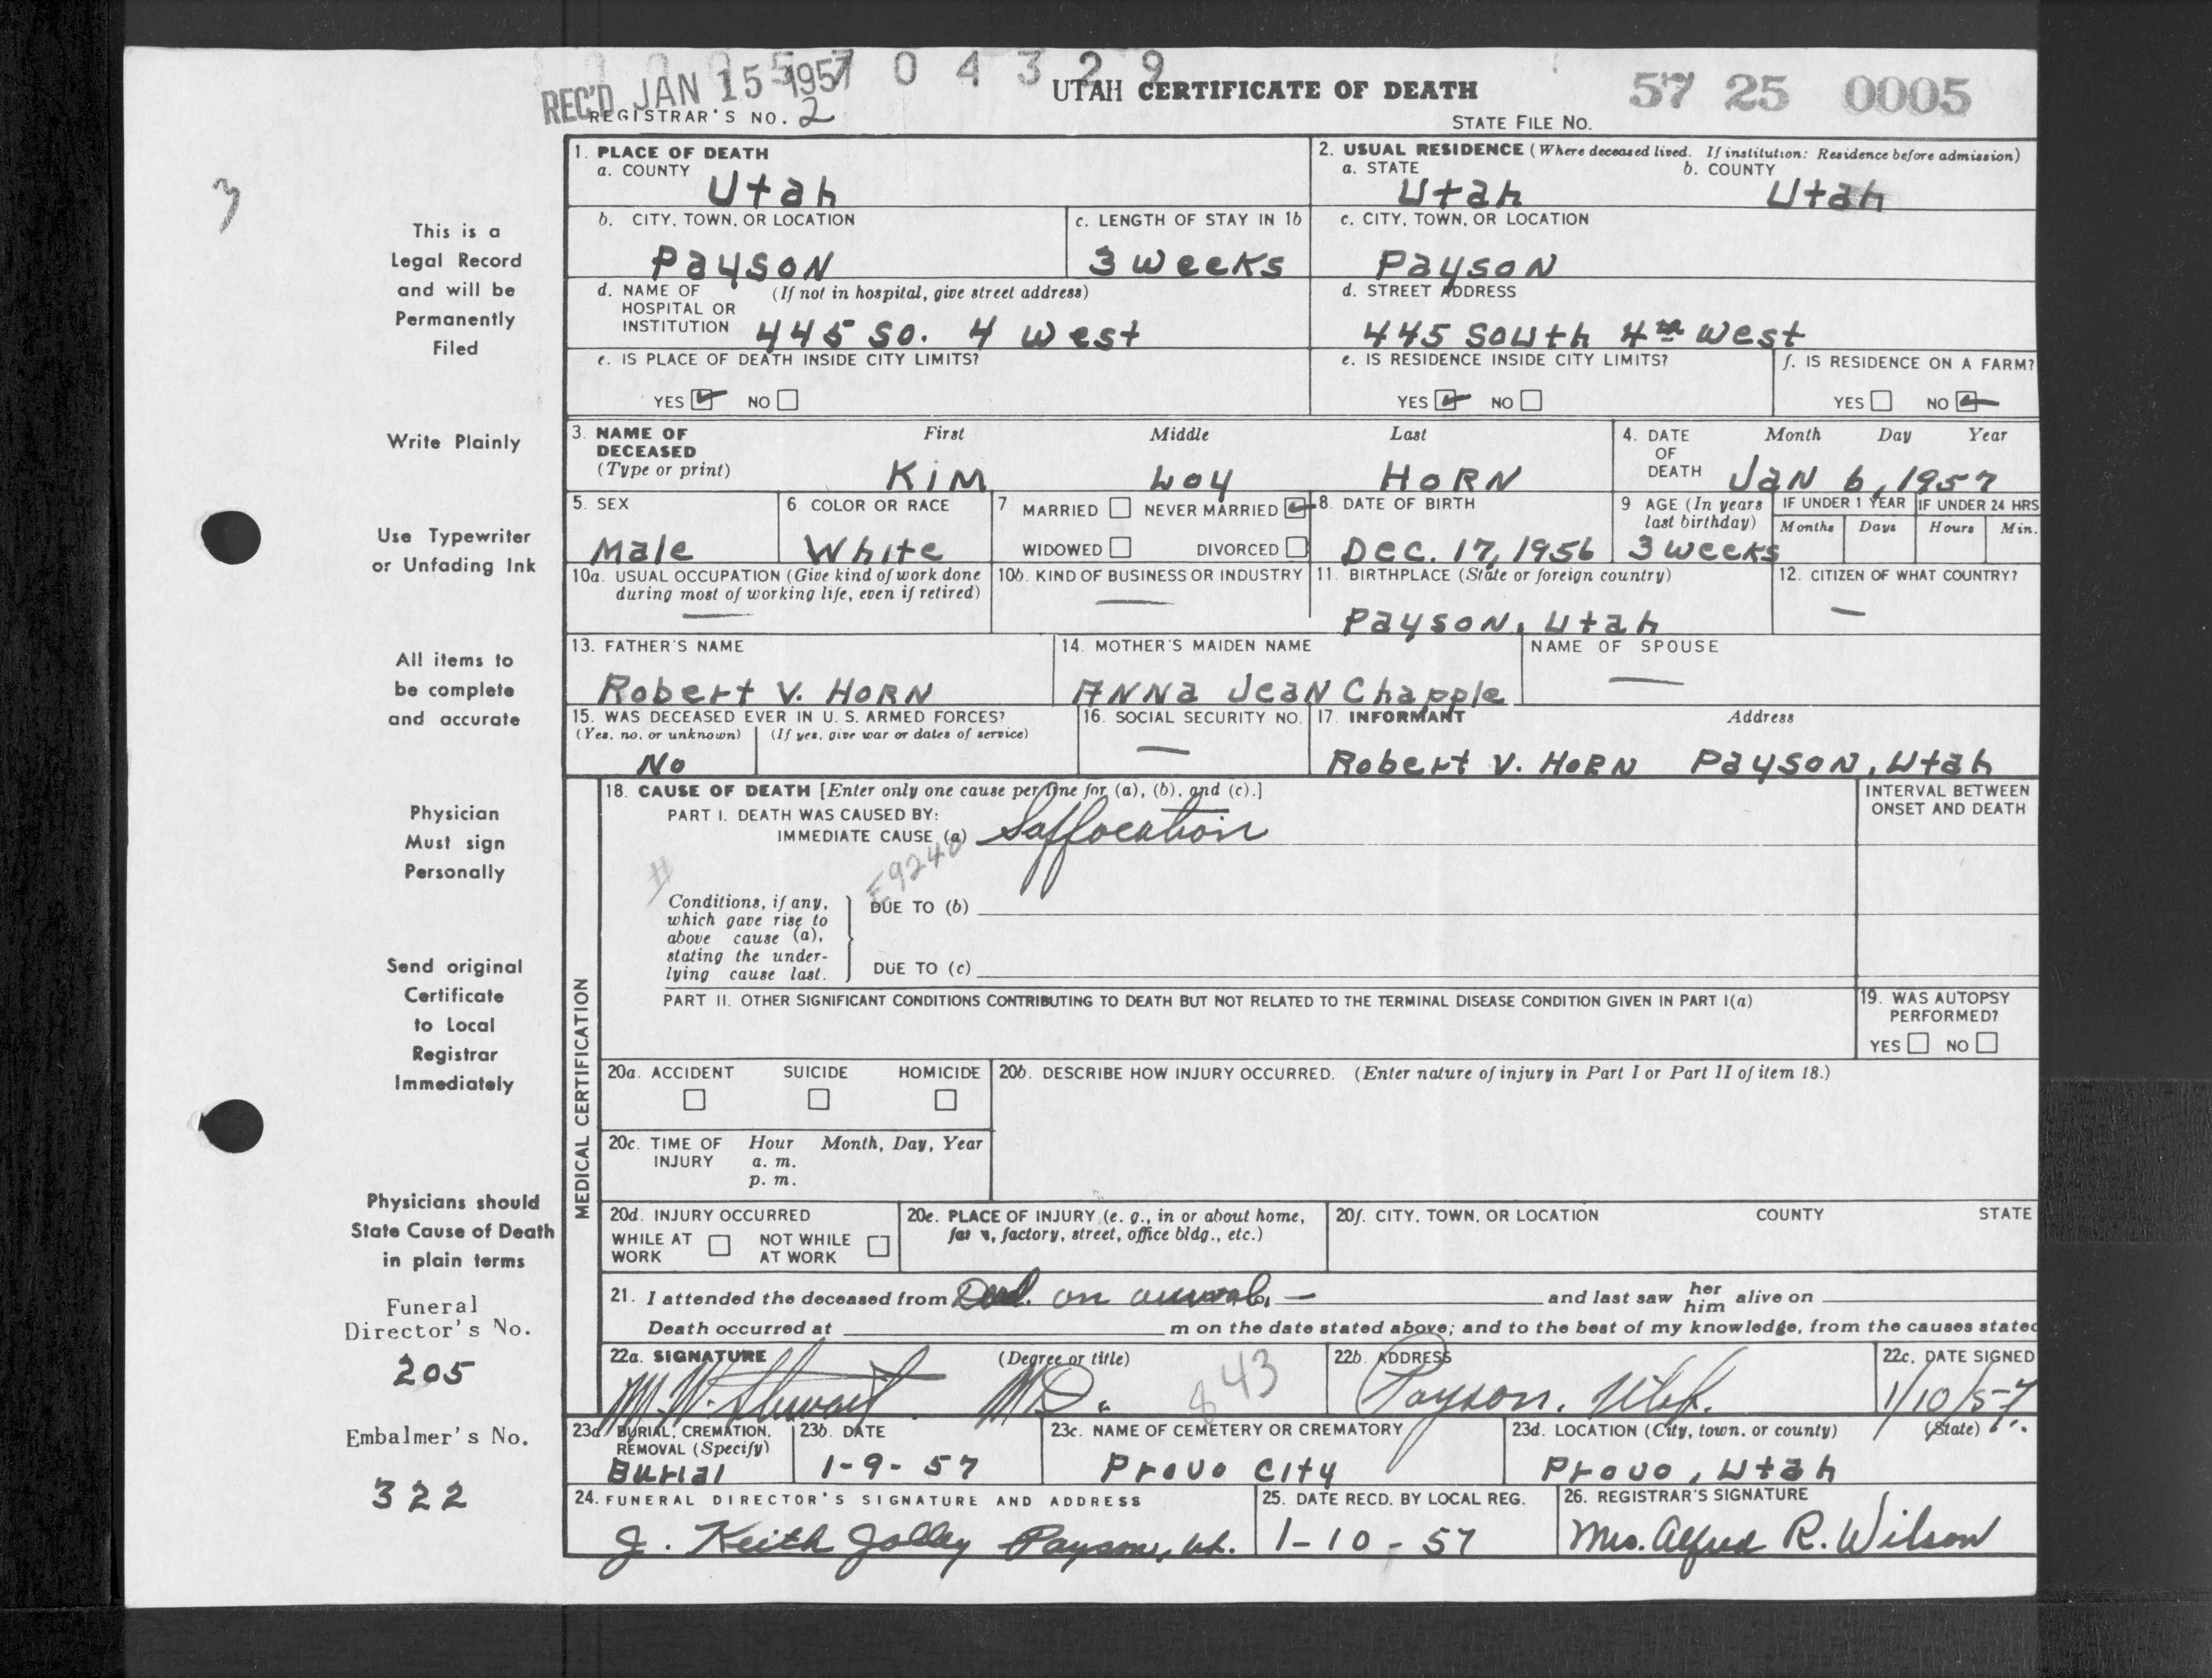 REC'D JAN 15 1957 0 4 3 2 9
UTAH CERTIFICATE OF DEATH
57 25 0005
REGISTRAR'S NO. 2
STATE FILE NO.
3
This is a
Legal Record
and will be
Permanently
Filed
Write Plainly
Use Typewriter
or Unfading Ink
All items to
be complete
and accurate
Physician
Must sign
Personally
Send original
Certificate
to Local
Registrar
Immediately
Physicians should
State Cause of Death
in plain terms
Funeral
Director's No.
205
Embalmer's No.
322
1. PLACE OF DEATH
a. COUNTY
Utah
2. USUAL RESIDENCE (Where deceased lived. If institution: Residence before admission)
a. STATE b. COUNTY
Utah Utah
b. CITY, TOWN, OR LOCATION
Payson
c. LENGTH OF STAY IN 1b
3 weeks
c. CITY, TOWN, OR LOCATION
Payson
d. NAME OF (If not in hospital, give street address)
HOSPITAL OR
INSTITUTION 445 So. 4 West
d. STREET ADDRESS
445 South 4th West
e. IS PLACE OF DEATH INSIDE CITY LIMITS?
YES NO
e. IS RESIDENCE INSIDE CITY LIMITS?
YES NO
f. IS RESIDENCE ON A FARM?
YES NO
3. NAME OF First Middle Last
DECEASED
(Type or print) KIM LOY HORN
4. DATE Month Day Year
OF
DEATH JAN 6, 1957
5. SEX
Male
6. COLOR OR RACE
White
7 MARRIED NEVER MARRIED
WIDOWED DIVORCED
8. DATE OF BIRTH
Dec. 17, 1956
9 AGE (In years
last birthday)
3 weeks
IF UNDER 1 YEAR
Months Days
IF UNDER 24 HRS
Hours Min.
10a. USUAL OCCUPATION (Give kind of work done
during most of working life, even if retired)
—
10b. KIND OF BUSINESS OR INDUSTRY
—
11. BIRTHPLACE (State or foreign country)
Payson, Utah
12. CITIZEN OF WHAT COUNTRY?
—
13. FATHER'S NAME
Robert V. HORN
14. MOTHER'S MAIDEN NAME
Anna Jean Chapple
NAME OF SPOUSE
—
15. WAS DECEASED EVER IN U. S. ARMED FORCES?
(Yes, no, or unknown) (If yes, give war or dates of service)
No
16. SOCIAL SECURITY NO.
—
17. INFORMANT Address
Robert V. HORN Payson, Utah
MEDICAL CERTIFICATION
18. CAUSE OF DEATH [Enter only one cause per line for (a), (b), and (c).]
PART I. DEATH WAS CAUSED BY:
IMMEDIATE CAUSE (a) Suffocation
INTERVAL BETWEEN
ONSET AND DEATH
E9240
Conditions, if any,
which gave rise to
above cause (a),
stating the under-
lying cause last.
DUE TO (b)
DUE TO (c)
PART II. OTHER SIGNIFICANT CONDITIONS CONTRIBUTING TO DEATH BUT NOT RELATED TO THE TERMINAL DISEASE CONDITION GIVEN IN PART I(a)
19. WAS AUTOPSY
PERFORMED?
YES NO
20a. ACCIDENT SUICIDE HOMICIDE
20b. DESCRIBE HOW INJURY OCCURRED. (Enter nature of injury in Part I or Part II of item 18.)
20c. TIME OF Hour Month, Day, Year
INJURY a. m.
p. m.
20d. INJURY OCCURRED
WHILE AT NOT WHILE
WORK AT WORK
20e. PLACE OF INJURY (e. g., in or about home,
factory, street, office bldg., etc.)
20f. CITY, TOWN, OR LOCATION COUNTY STATE
21. I attended the deceased from Dead on arrival. — and last saw her him alive on
Death occurred at m on the date stated above; and to the best of my knowledge, from the causes stated
22a. SIGNATURE (Degree or title)
M. W. Stewart M.D.
843
22b. ADDRESS
Payson, Utah.
22c. DATE SIGNED
1/10/57
23a. BURIAL, CREMATION,
REMOVAL (Specify)
Burial
23b. DATE
1-9-57
23c. NAME OF CEMETERY OR CREMATORY
Provo City
23d. LOCATION (City, town, or county) (State)
Provo, Utah
24. FUNERAL DIRECTOR'S SIGNATURE AND ADDRESS
J. Keith Jolley Payson, Ut.
25. DATE RECD. BY LOCAL REG.
1-10-57
26. REGISTRAR'S SIGNATURE
Mrs. Alfred R. Wilson